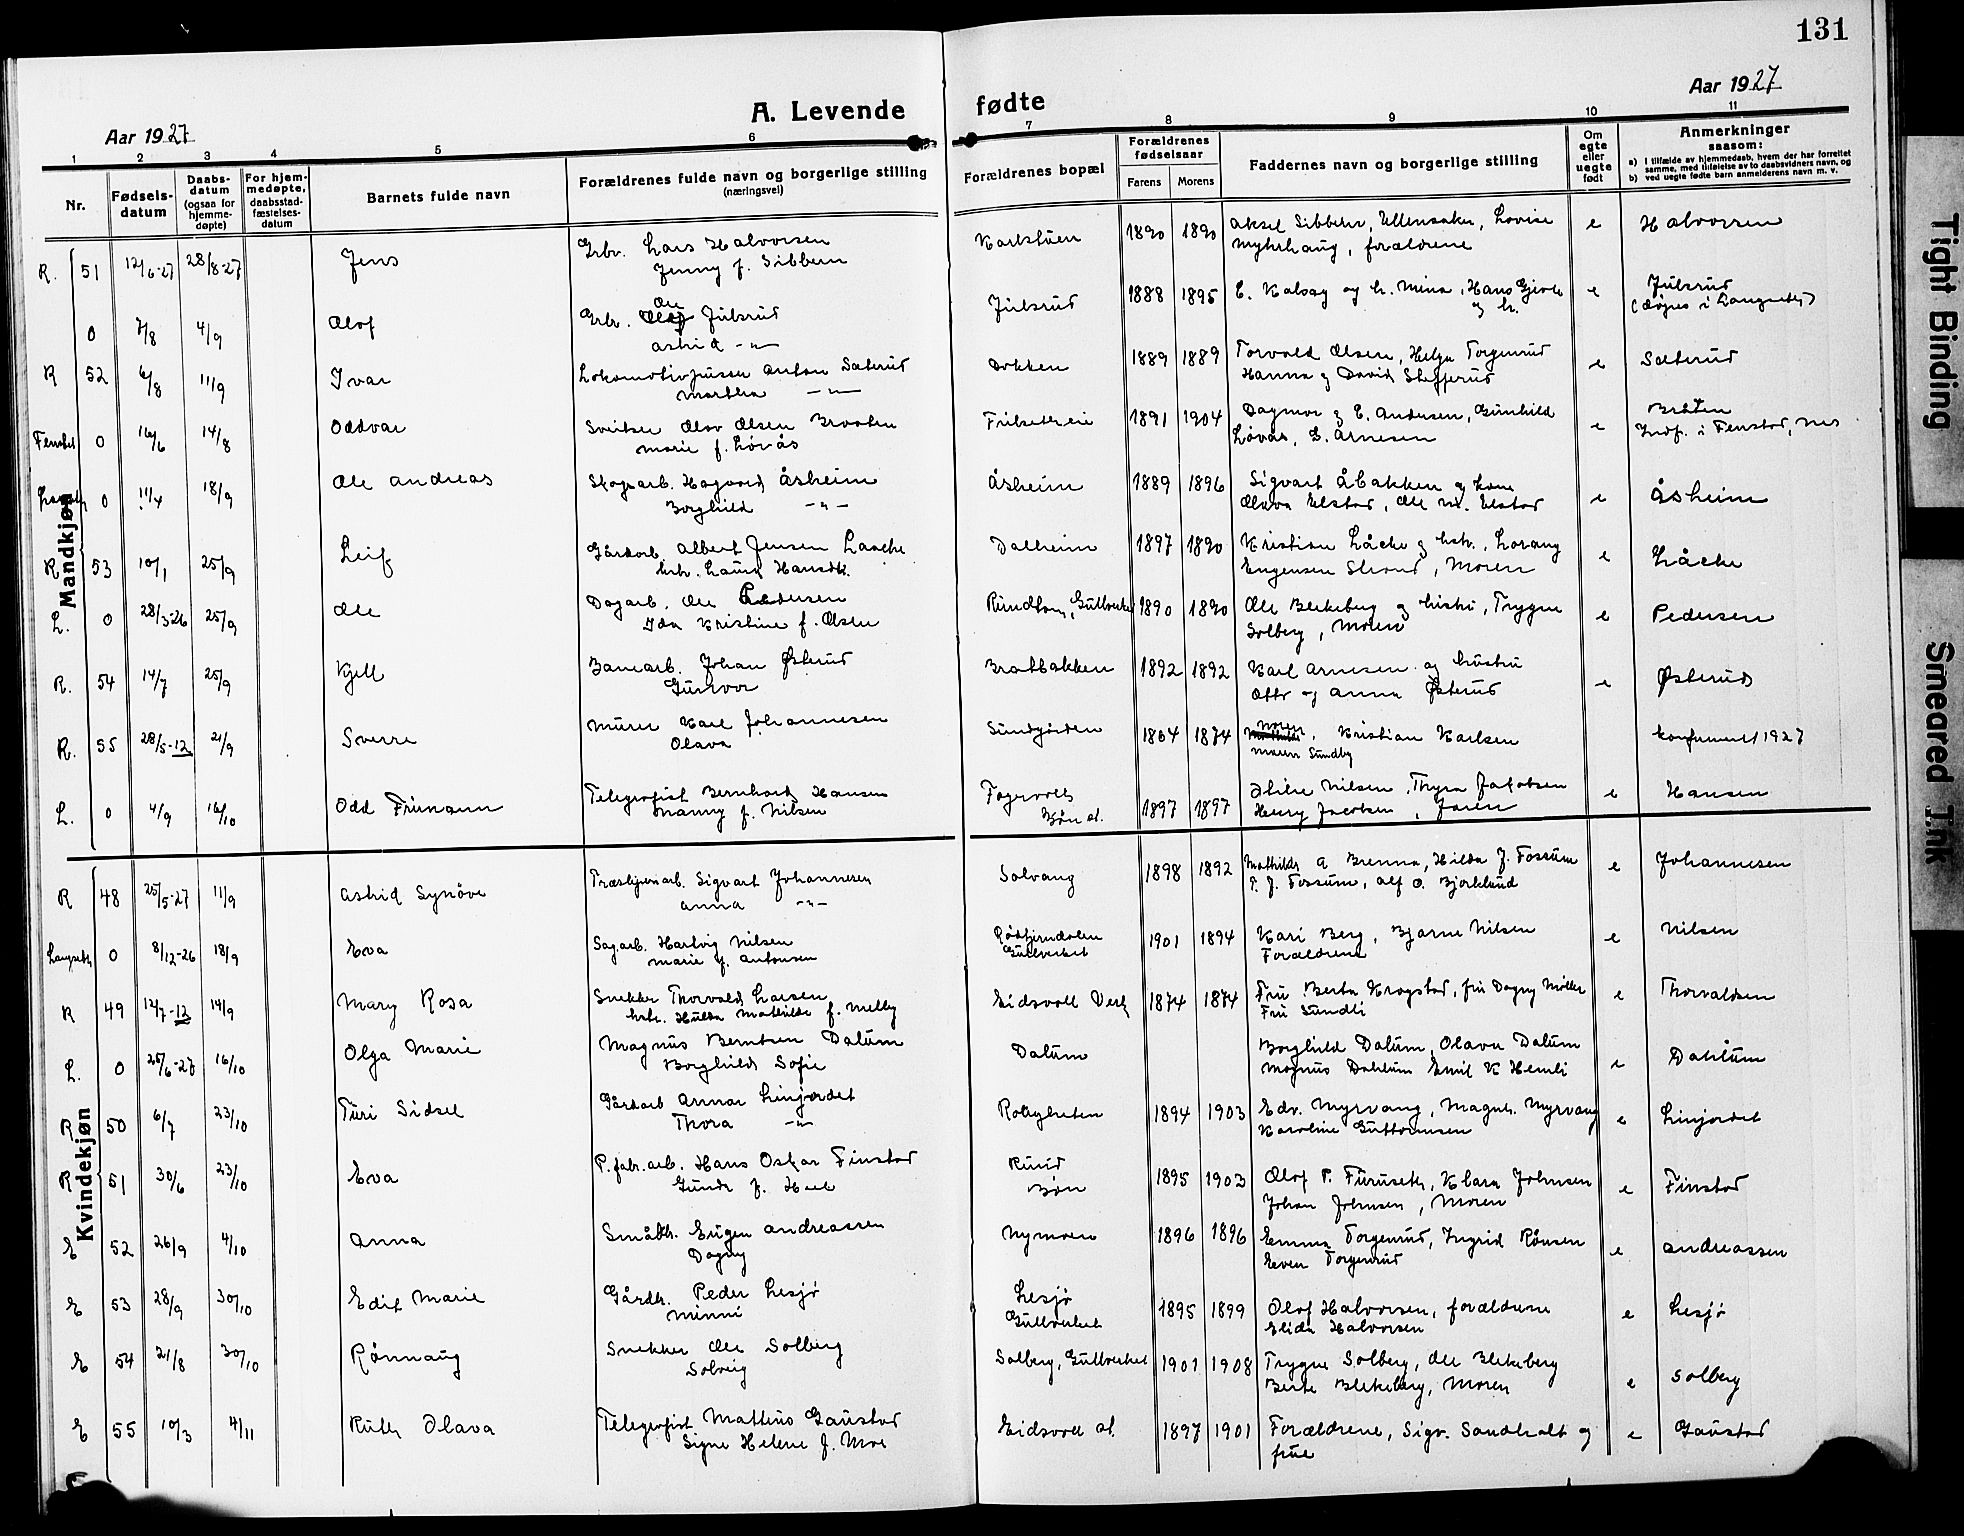 131
Aar 1927
A. Levende
fødte
Aar 1927
1 2 3 4 5 6 7 8 9 10 11
Nr.
Fødsels-datum
Daabs-datum (ogsaa for hjemme-døpte)
For hjem-medøpte, daabsstad-fæstelses-datum
Barnets fulde navn
Forældrenes fulde navn og borgerlige stilling (næringsvei)
Forældrenes bopæl
Forældrenes fødselsaar
Farens Morens
Faddernes navn og borgerlige stilling
Om egte eller uegte født
Anmerkninger saasom:
a) I tilfælde av hjemmedaab, hvem der har forrettet samme, med tilføielse av to daabsvidners navn, og
b) ved uegte fødte barn anmelderens navn m. v.
Mandkjøn
R. 51 12/6-27 28/8-27 Jens Grbr. Lars Halvorsen 1890 1890 Aksel Sibbern, Ullensaker, Lovise e Halvorsen
Jenny f. Sibbern Myhrhaug, forældrene
0 7/8 4/9 Olof Grbr. Ole Julsrud Julsrud 1888 1895 E. Kalsøg og h. Mina, Hans Gjerle e Julsrud
Astrid -"- og h. (døpes i Langseth)
R 52 6/8 11/9 Ivar Lokomotivpusser Anton Sæterud Dokken 1889 1889 Torvald Olsen, Helga Torgenrud e Sæterud
Martha -"- Hanna og David Stefferud
Fenstad 0 16/6 14/8 Oddvar Sveitser Olav Olsen Braaten 1891 1904 Dagmar og E. Andersen, Gunhild e Bråten
Marie f. Løvås Løvås, E. Arnesen Indf. i Fenstad, Nes
Langseth 0 11/4 18/9 Ole Andreas Skogsarb. Hagvard Åsheim Åsheim 1889 1896 Sigvart Åbakken og kone e Åsheim
Borghild -"- Olava Elstad, Ole M. Elstad
R 53 10/1 25/9 Leif Gårdarb. Albert Jensen Laache Dalheim 1897 1890 Kristian Låche og hstr., Lorang e Låche
hstr. Laura Hansdt. Engensen Strand, Moren
L. 0 28/3-26 25/9 Ole Dagarb. Ole Pedersen Rundtom, Gullverket 1890 1890 Ole Blekeberg og hustru, Trygve e Pedersen
Ida Kristine f. Olsen Solberg, Moren
R. 54 14/7 25/9 Kjell Banearb. Johan Østerud Bratbakken 1892 1892 Karl Arnesen og hustru e Østerud
Gunvor Otto og Anna Østerud
R. 55 28/5-12 21/9 Sverre Murer Karl Johannesen Sundjorden 1864 1874 Moren, Kristian Karlsen konfirmeret 1927
Olava Maren Sundby
L. 0 4/9 16/10 Odd Frimann Telegrafist Bernhard Hansen Fagervoll 1897 1897 Nilsen, Thyra Jakobsen e Hansen
Nanny f. Nilsen Bøn st. Henry Jacobsen, faren
Kvindekjøn
R 48 25/5-27 11/9 Astrid Synøve Træsliperiarb. Sigvart Johannesen Solvang 1898 1892 Mathilde A Brenna, Hilda J. Fossum e Johannesen
Anna -"- P. J. Fossum, Alf O. Bjørklund
Langseth 0 8/12-26 18/9 Eva Sag.arb. Hartvig Nilsen Rødtjerndalen 1901 1894 Kari Berg, Bjarne Nilsen e Nilsen
Marie f. Antonsen Gullverket Forældrene
R 49 12/7-12 14/9 Mary Rosa Snekker Thorvald Larsen Eidsvoll Verk 1874 1874 Fru Berta Krogstad, fru Dagny Møller e Thorvaldsen
hstr. Hulda Mathilde f. Melby Fru Sundli
L. 0 25/6-27 16/10 Olga Marie Magnus Berntsen Dalum Dalum Borghild Dalum, Olava Dalum e Dahlum
Borghild Sofie Magnus Dahlum Emil K Hemli
R 50 6/7 23/10 Turi Sidsel Gårdarb Annar Linjordet 1894 1903 Edv. Myrvang, Magnh. Myrvang e Linjordet
Thora -"- Karoline Guttormsen
R 51 30/6 23/10 Eva P.fabr.arb. Hans Oskar Finstad Ruud 1895 1903 Olof P. Furuseth, Klara Johnsen e Finstad
Gunda f. Bøn Johan Johnsen, Moren
E 52 26/9 4/10 Anna Småbr. Eugen Andreassen Nymoen 1896 1896 Emma Torgenrud, Ingrid Rånsen e Andreassen
Dagny Even Torgenrud
E 53 28/9 30/10 Edit Marie Gårdbr. Peder Lesjø Lesjø 1895 1899 Olof Halvorsen, forældrene e Lesjø
Minni Gullverket Elida Halvorsen
E 54 21/8 30/10 Rønnaug Snekker Ole Solberg Solberg, Gullverket 1901 1908 Trygve Solberg, Ole Blekeberg e Solberg
Solveig Berte Blekeberg, Moren
E 55 10/3 4/11 Ruth Olava Telegrafist Mattius Gaustad Eidsvoll st. 1897 1901 Forældrene, Sigv. Sandholt og e Gaustad
Signe Helene f. Moe frue
Tight Binding
Smeared Ink